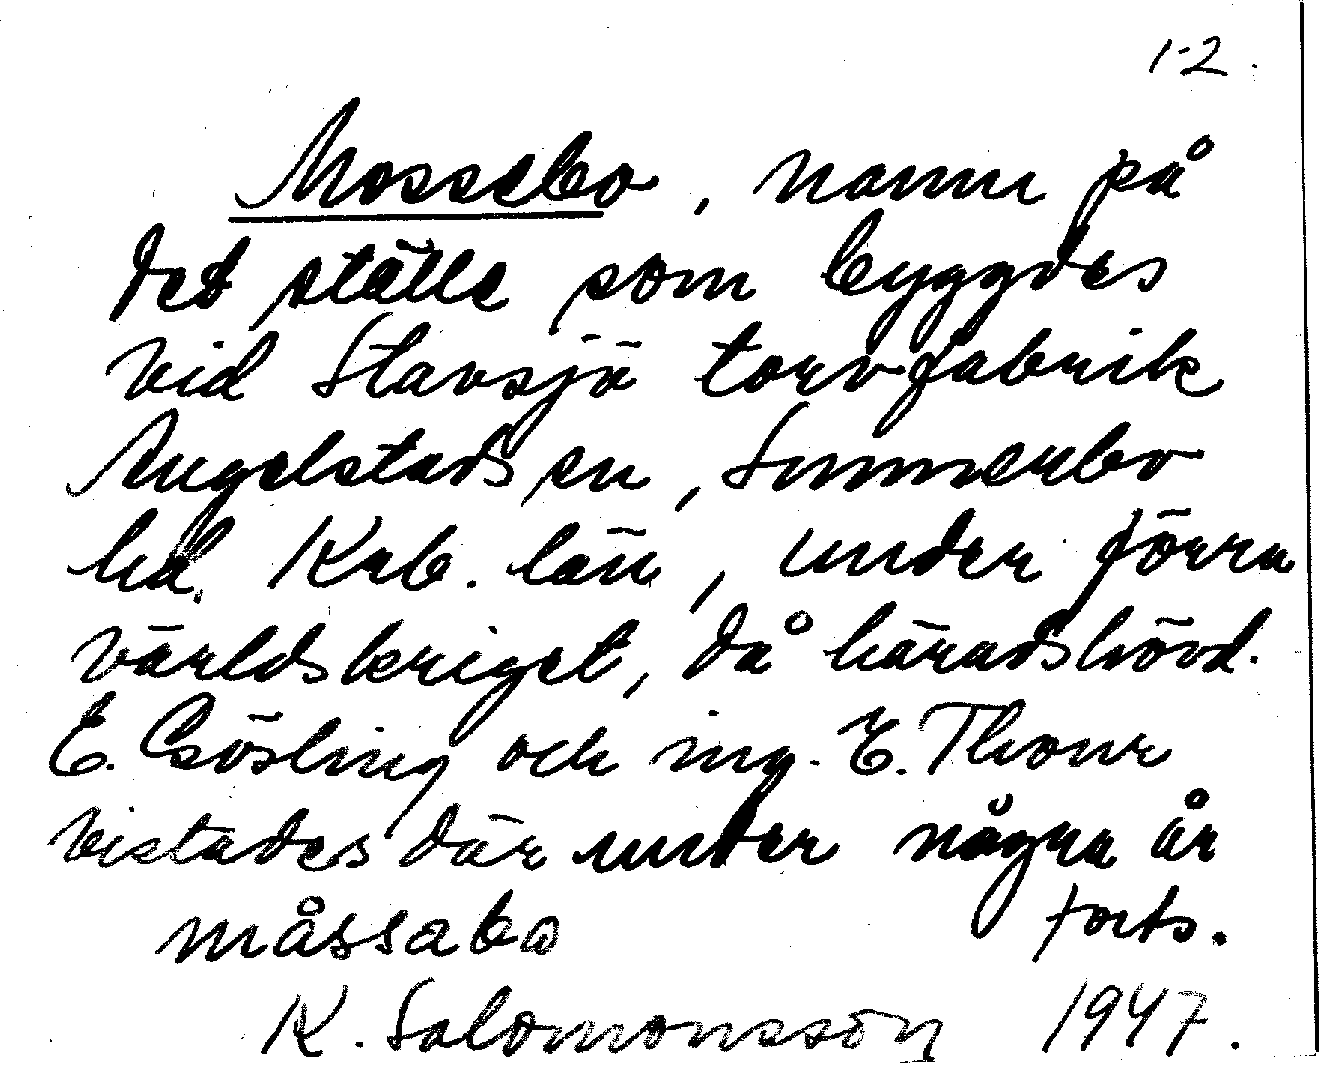 1-2.
Mossebo, namn på
det ställe som byggdes
vid Stavsjö torvfabrik
Angelstads sn, Sunnerbo
hd. Krb. län, under förra
världskriget, då häradshövd.
E. Gösling och ing. E. Thour
vistades där under några år
måssabo forts.
K. Salomonsson 1947.